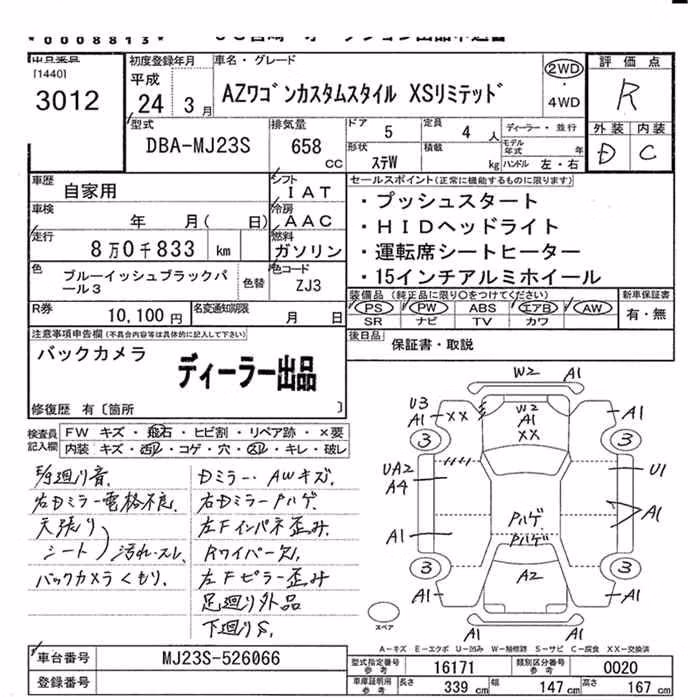 *0008813*
出品番号
[1440]
3012
初度登録年月
平成
24 3月
車名・グレード
AZワゴンカスタムスタイル XSリミテッド
2WD
・
4WD
評価点
R
外装 内装
D C
型式
DBA-MJ23S
排気量
658
CC
ドア 5
定員 4 人
ディーラー・並行
形状 ステW
積載 kg
モデル年式 年
ハンドル 左・右
車歴 自家用
シフト IAT
車検 年 月( 日)
冷房 AAC
走行 8万0千833 km
燃料 ガソリン
色 ブルーイッシュブラックパール3
色替
色コード ZJ3
R券 10,100円
名変通知期限 月 日
セールスポイント(正常に機能するものに限ります)
・プッシュスタート
・HIDヘッドライト
・運転席シートヒーター
・15インチアルミホイール
装備品(純正品に限り○をつけてください)
PS PW ABS エアB AW
SR ナビ TV カワ
新車保証書
有・無
後日品 保証書・取説
注意事項申告欄(不具合内容等は具体的に記入して下さい)
バックカメラ
ディーラー出品
修復歴 有〔箇所 〕
検査員記入欄
FW キズ・飛石・ヒビ割・リペア跡・×要
内装 キズ・ ・コゲ・穴・ ・キレ・破レ
廻り音.
右Dミラー電格不良.
天張り
シート 汚れ・スレ
バックカメラくもり.
Dミラー・AWキズ.
右Dミラーハゲ
左Fインパネ歪み.
Rワイパー欠.
左Fピラー歪み
足廻り外品
下廻りS.
W2 A1
U3
A1 XX
W2
A1
XX
A1
3 3
UA2
A4
U1
A1
A1
ハゲ
ハゲ
3 3
A2
A1 A1
A1
スペア
A-キズ E-エクボ U-凹み W-補修跡 S-サビ C-腐食 XX-交換済
車台番号 MJ23S-526066
登録番号
型式指定番号参考 16171
類別区分番号参考 0020
車庫証明用参考 長さ 339 cm 幅 147 cm 高さ 167 cm